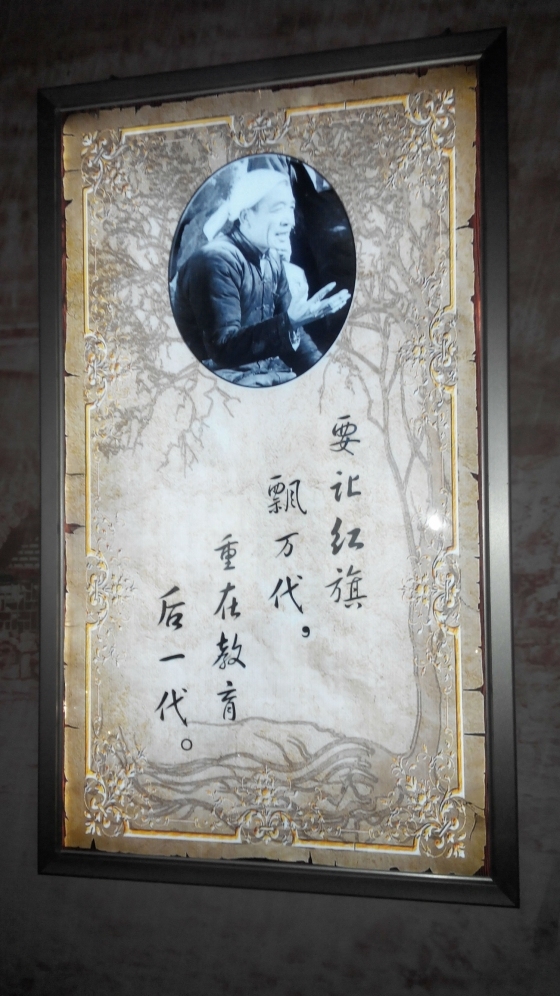 要让红旗
飘万代，
重在教育
后一代。